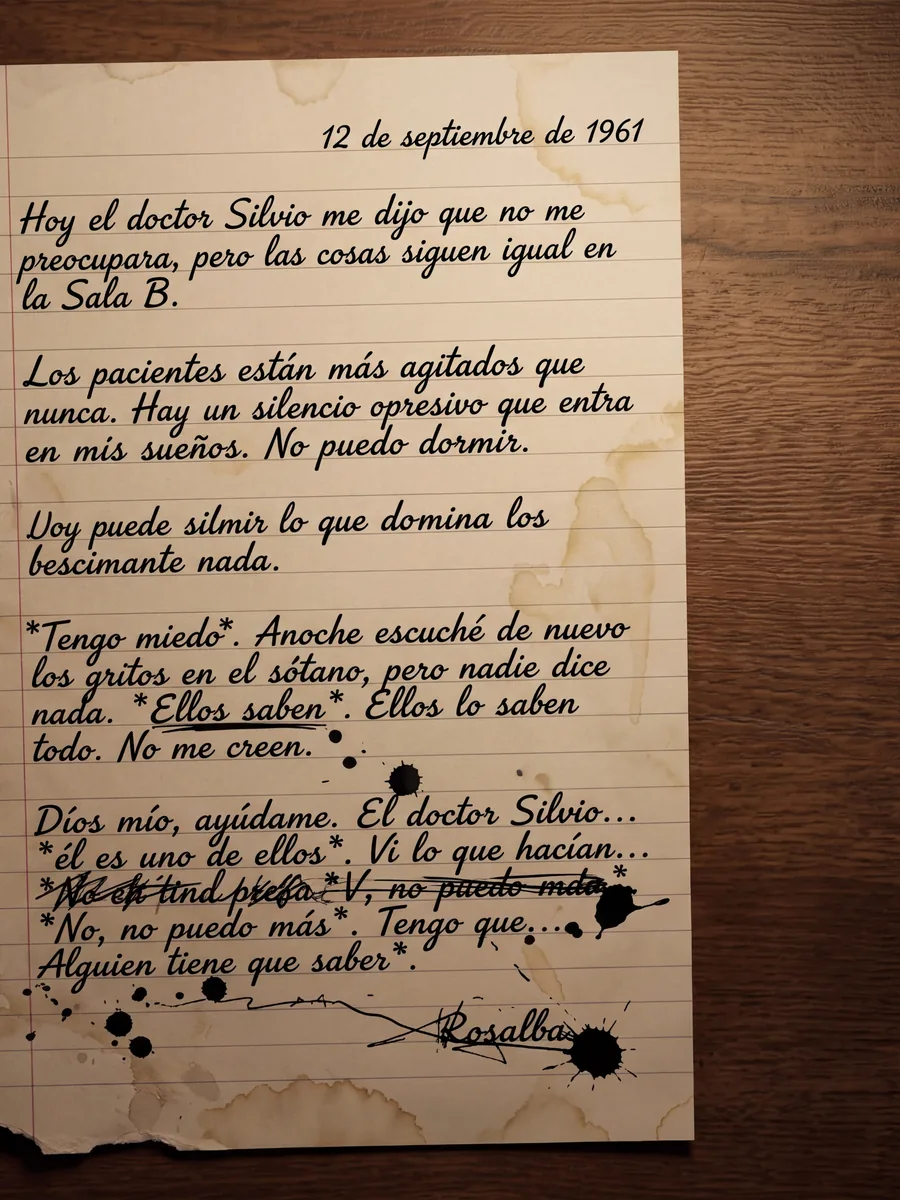 12 de septiembre de 1961
Hoy el doctor Silvio me dijo que no me
preocupara, pero las cosas siguen igual en
la Sala B.
Los pacientes están más agitados que
nunca. Hay un silencio opresivo que entra
en mís sueños. No puedo dormir.
Uoy puede silmir lo que domina los
bescimante nada.
*Tengo miedo*. Anoche escuché de nuevo
los gritos en el sótano, pero nadie dice
nada. *Ellos saben*. Ellos lo saben
todo. No me creen.
Díos mío, ayúdame. El doctor Silvio...
*él es uno de ellos*. Vi lo que hacían...
*V, no puedo
*No, no puedo más*. Tengo que....
Alguien tiene que saber*.
Rosalba